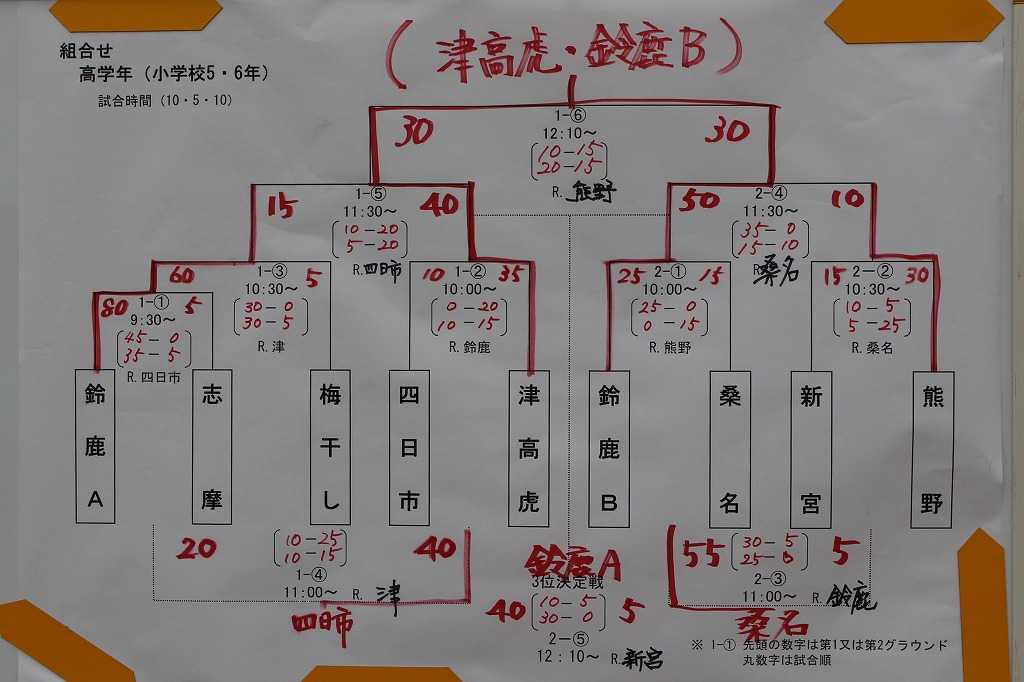 組合せ
高学年（小学校5・6年）
試合時間（10・5・10）
（津高虎・鈴鹿B）
30 1-⑥ 30
12:10～
10-15
20-15
R. 熊野
15 1-⑤ 40
11:30～
10-20
5-20
R.四日市
50 2-④ 10
11:30～
35-0
15-10
R.桑名
80 1-① 5
9:30～
45-0
35-5
R.四日市
60 1-③ 5
10:30～
30-0
30-5
R.津
10 1-② 35
10:00～
0-20
10-15
R.鈴鹿
25 2-① 15
10:00～
25-0
0-15
R.熊野
15 2-② 30
10:30～
10-5
5-25
R.桑名
鈴鹿A
志摩
梅干し
四日市
津高虎
鈴鹿B
桑名
新宮
熊野
20 10-25 40
10-15
1-④
11:00～ R. 津
四日市
鈴鹿A
3位決定戦
40 10-5 5
30-0
2-⑤
12:10～ R.新宮
55 30-5 5
25-0
2-③
11:00～ R.鈴鹿
桑名
※ 1-① 先頭の数字は第1又は第2グラウンド
丸数字は試合順